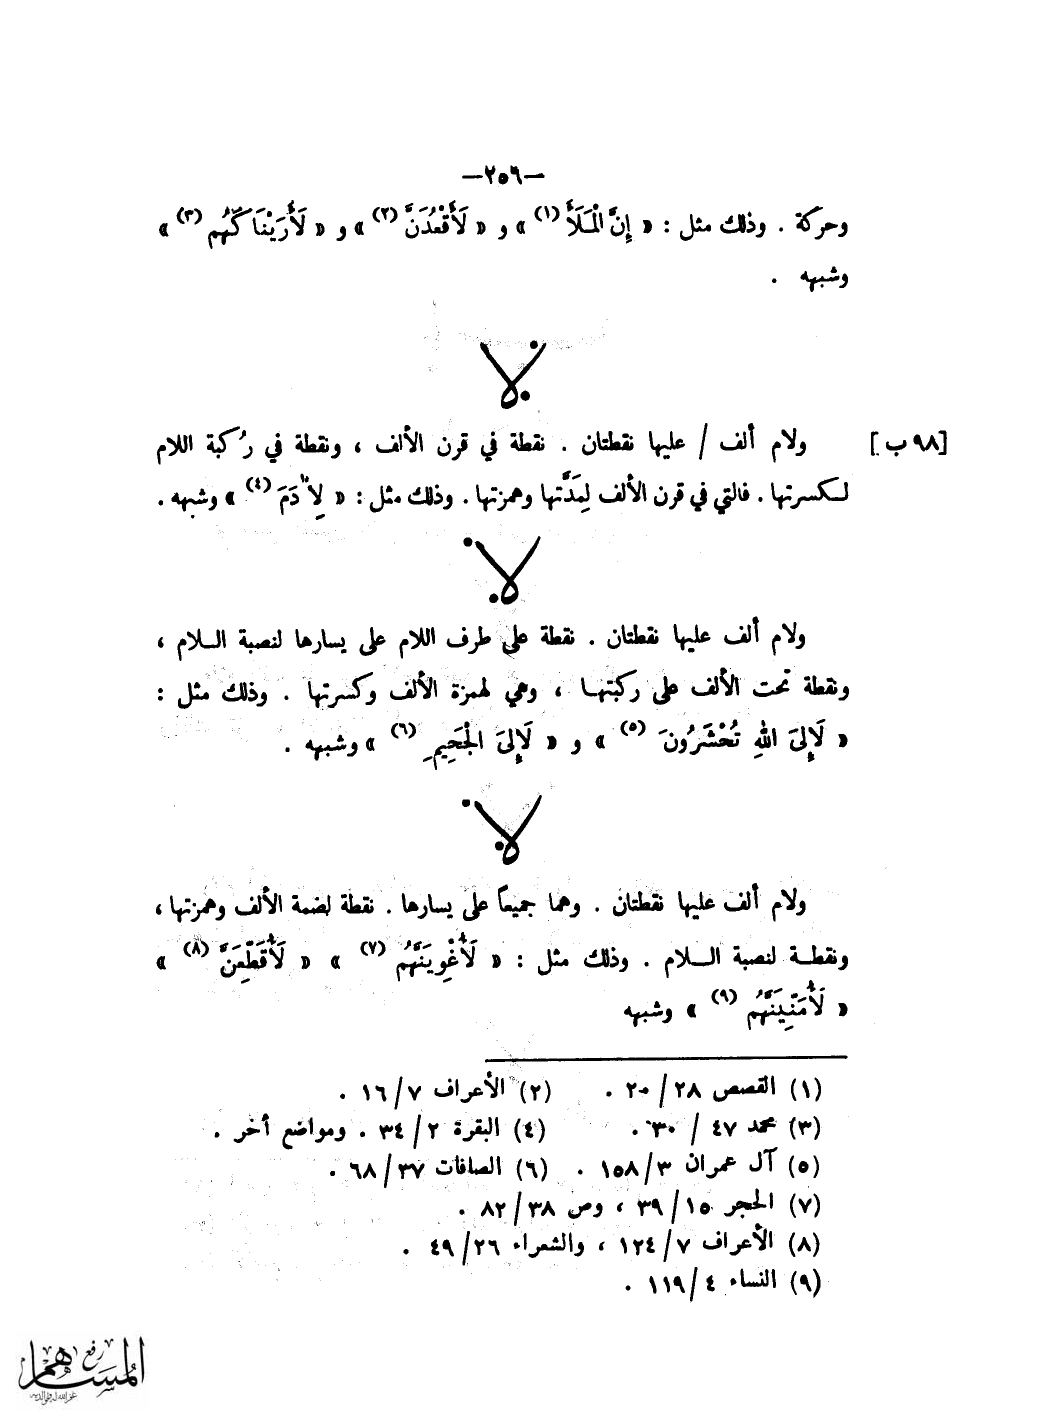 —٢٥٦—
وحركة . وذلك مثل : « إِنَّ الْمَلَأَ (١) » و « لَأَقْعُدَنَّ (٢) » و « لَأَرَيْنَاكَهُم (٣) »
وشبهه .
لا
[٩٨ ب] ولام ألف / عليها نقطتان . نقطة في قرن الألف ، ونقطة في رُكبة اللام
لـكسرتها . فالتي في قرن الألف لِمَدَّتها وهمزتها . وذلك مثل : « لِآدَمَ (٤) » وشبهه .
لا
ولام ألف عليها نقطتان . نقطة على طرف اللام على يسارها لنصبة السلام ،
ونقطة تحت الألف على ركبتها ، وهي لهمزة الألف وكسرتها . وذلك مثل :
« لَإِلىَ اللهِ تُحْشَرُونَ (٥) » و « لَإِلىَ الْجَحِيمِ (٦) » وشبهه .
لا
ولام ألف عليها نقطتان . وهما جميعاً على يسارها . نقطة لضمة الألف وهمزتها ،
ونقطة لنصبة السلام . وذلك مثل : « لَأُغْوِيَنَّهُم (٧) » « لَأُقَطِّعَنَّ (٨) »
« لَأُمَنِّيَنَّهُم (٩) » وشبهه
(١) القصص ٢٨ / ٢٠ . (٢) الأعراف ٧ / ١٦ .
(٣) محمد ٤٧ / ٣٠ . (٤) البقرة ٢ / ٣٤ . ومواضع أخر .
(٥) آل عمران ٣ / ١٥٨ . (٦) الصافات ٣٧ / ٦٨ .
(٧) الحجر ١٥ / ٣٩ ، وص ٣٨ / ٨٢ .
(٨) الأعراف ٧ / ١٢٤ ، والشعراء ٢٦ / ٤٩ .
(٩) النساء ٤ / ١١٩ .
رفع
المساهم